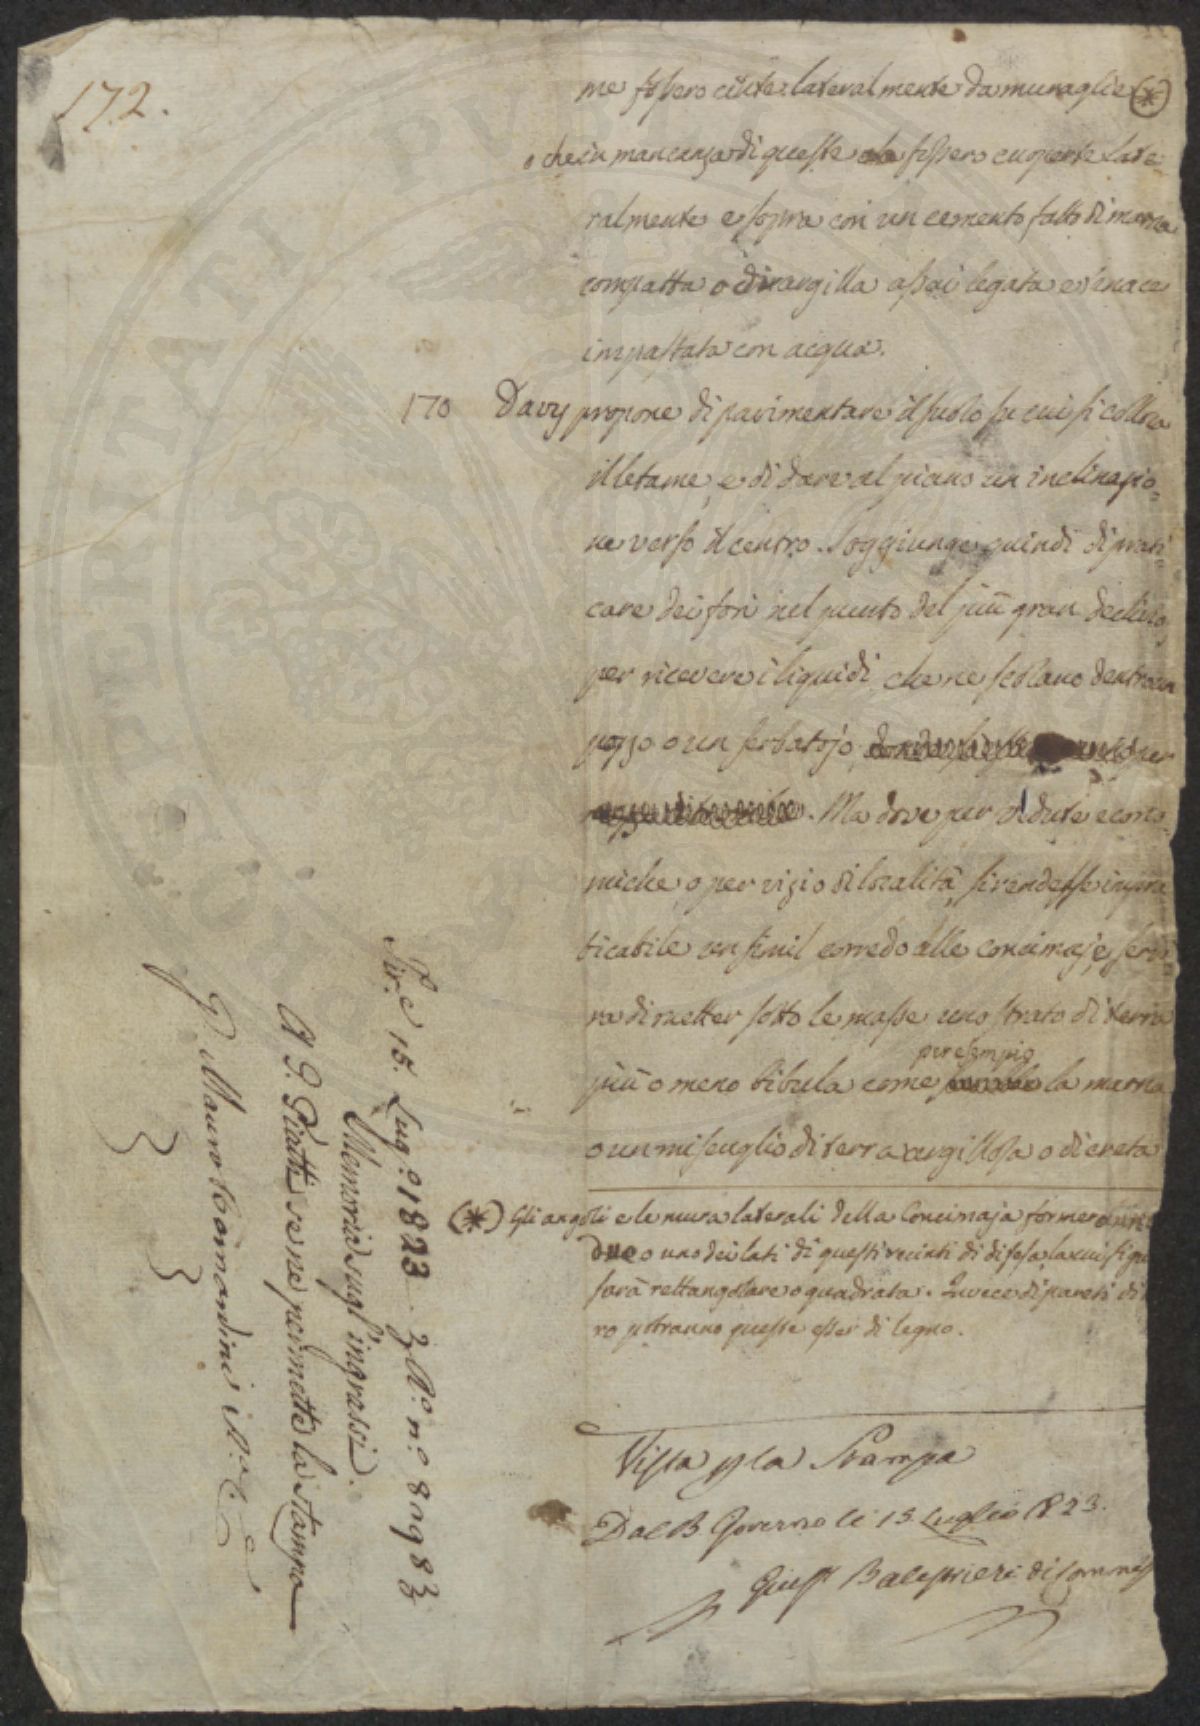 172.
me fossero cinte lateralmente da muraglie (*)
o che in mancanza di queste fossero coperte late
ralmente e sopra con un cemento fatto di marna
compatta o di argilla assai legata e tenace
impastata con acqua.
170 Davy propone di pavimentare il suolo su cui si colloca
il letame, e di dare al piano un inclinazio-
ne verso il centro. Soggiunge quindi di prati
care dei fori nel punto del più gran declivo,
per ricevere i liquidi che ne scolano dentro un
pozzo o un serbatojo
. Ma dove per vedute econo
miche o per vizio di località, si rendesse impra
ticabile un simil corredo alle concimaje, servi
rà di metter sotto le masse uno strato di terra
per esempio
più o meno bibula come la marna
o un miscuglio di terra argillosa o di creta
(*) Gli angoli e le mura laterali della Concimaja formeranno
due o uno dei lati di questi recinti di difesa, la cui figu
sarà rettangolare o quadrata. Invece di pareti di
ro potranno queste esser di legno.
Vista p la Stampa
Dal B. Governo li 15 Luglio 1823.
Giusp. Balestrieri di Commiss
Fir.e 15. Lug.o 1823.
Memoria sugl'ingrassi.
Al S. Piatti se ne permette la stampa
P. Mauro Bernardini